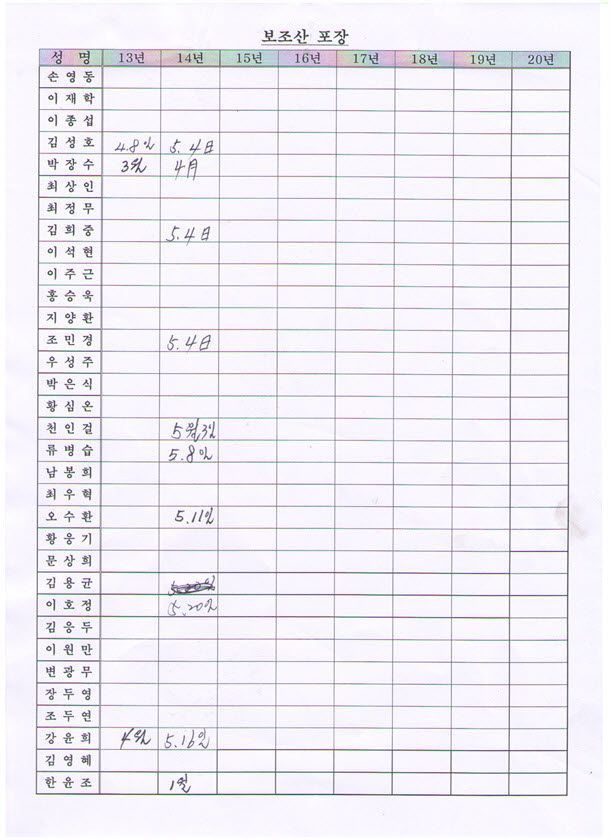 보조산 포장
성 명 13년 14년 15년 16년 17년 18년 19년 20년
손 영 동
이 재 학
이 종 섭
김 성 호 4.8일 5.4日
박 장 수 3월 4月
최 상 인
최 정 무
김 희 중 5.4日
이 석 현
이 주 근
홍 승 욱
지 양 환
조 민 경 5.4日
우 성 주
박 은 식
황 심 온
천 인 걸 5월3일
류 병 습 5.8일
남 봉 희
최 우 혁
오 수 환 5.11일
황 웅 기
문 상 희
김 용 균
이 호 정 5.20일
김 응 두
이 원 만
변 광 무
장 두 영
조 두 연
강 윤 희 4월 5.16일
김 영 혜
한 윤 조 1월